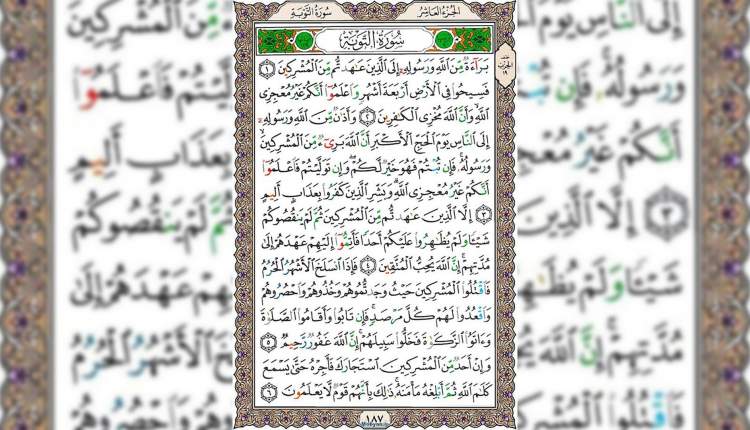 الجزء العاشر
سورة التوبة
سُورَةُ التَّوْبَةِ
بَرَآءَةٌ مِّنَ ٱللَّهِ وَرَسُولِهِۦٓ إِلَى ٱلَّذِينَ عَـٰهَدتُّم مِّنَ ٱلْمُشْرِكِينَ ١
فَسِيحُوا۟ فِى ٱلْأَرْضِ أَرْبَعَةَ أَشْهُرٍ وَٱعْلَمُوٓا۟ أَنَّكُمْ غَيْرُ مُعْجِزِى
ٱللَّهِ وَأَنَّ ٱللَّهَ مُخْزِى ٱلْكَـٰفِرِينَ ٢ وَأَذَٰنٌ مِّنَ ٱللَّهِ وَرَسُولِهِۦٓ
إِلَى ٱلنَّاسِ يَوْمَ ٱلْحَجِّ ٱلْأَكْبَرِ أَنَّ ٱللَّهَ بَرِىٓءٌ مِّنَ ٱلْمُشْرِكِينَ
وَرَسُولُهُۥ فَإِن تُبْتُمْ فَهُوَ خَيْرٌ لَّكُمْ وَإِن تَوَلَّيْتُمْ فَٱعْلَمُوٓا۟
أَنَّكُمْ غَيْرُ مُعْجِزِى ٱللَّهِ وَبَشِّرِ ٱلَّذِينَ كَفَرُوا۟ بِعَذَابٍ أَلِيمٍ
٣ إِلَّا ٱلَّذِينَ عَـٰهَدتُّم مِّنَ ٱلْمُشْرِكِينَ ثُمَّ لَمْ يَنقُصُوكُمْ
شَيْـًٔا وَلَمْ يُظَـٰهِرُوا۟ عَلَيْكُمْ أَحَدًا فَأَتِمُّوٓا۟ إِلَيْهِمْ عَهْدَهُمْ إِلَىٰ
مُدَّتِهِمْ إِنَّ ٱللَّهَ يُحِبُّ ٱلْمُتَّقِينَ ٤ فَإِذَا ٱنسَلَخَ ٱلْأَشْهُرُ ٱلْحُرُمُ
فَٱقْتُلُوا۟ ٱلْمُشْرِكِينَ حَيْثُ وَجَدتُّمُوهُمْ وَخُذُوهُمْ وَٱحْصُرُوهُمْ
وَٱقْعُدُوا۟ لَهُمْ كُلَّ مَرْصَدٍ فَإِن تَابُوا۟ وَأَقَامُوا۟ ٱلصَّلَوٰةَ
وَءَاتَوُا۟ ٱلزَّكَوٰةَ فَخَلُّوا۟ سَبِيلَهُمْ إِنَّ ٱللَّهَ غَفُورٌ رَّحِيمٌ ٥
وَإِنْ أَحَدٌ مِّنَ ٱلْمُشْرِكِينَ ٱسْتَجَارَكَ فَأَجِرْهُ حَتَّىٰ يَسْمَعَ
كَلَـٰمَ ٱللَّهِ ثُمَّ أَبْلِغْهُ مَأْمَنَهُۥ ذَٰلِكَ بِأَنَّهُمْ قَوْمٌ لَّا يَعْلَمُونَ ٦
١٨٧